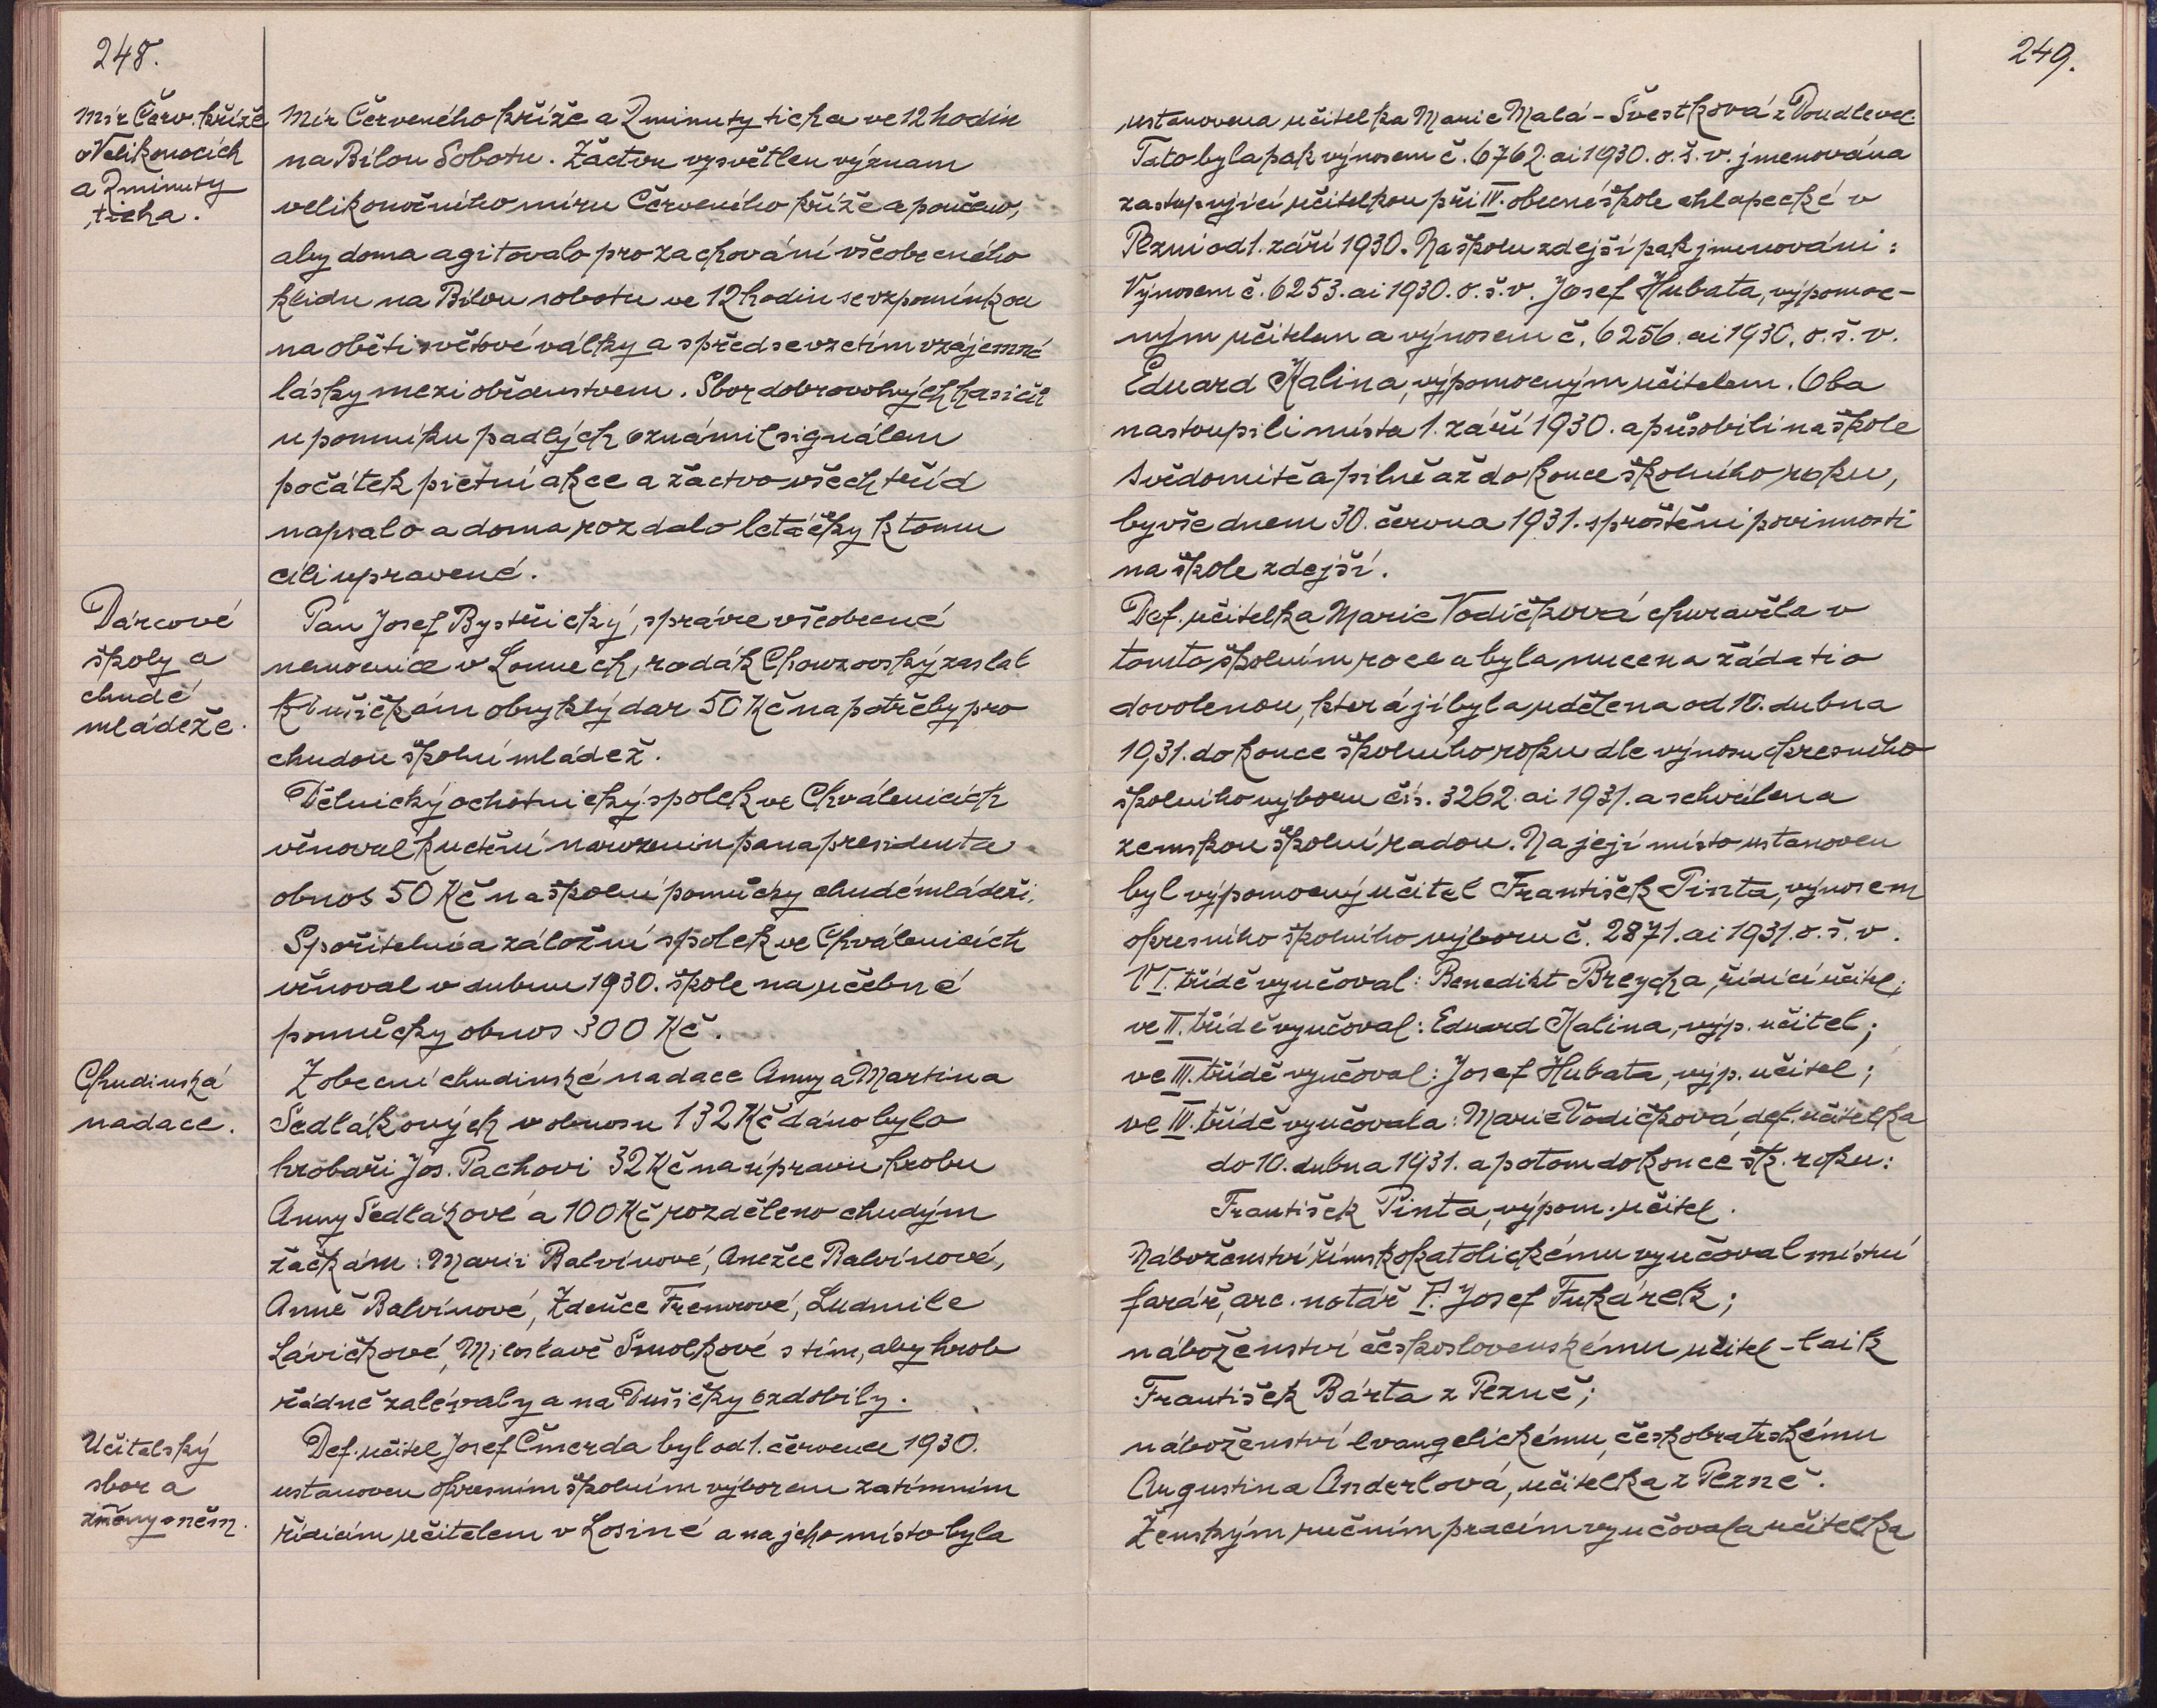 248.
Mír Červ. kříže
o Velikonocích
a 2 minuty
ticha.
Mír Červeného kříže a 2 minuty ticha ve 12 hodin
na Bílou Sobotu. Žactvu vysvětlen význam
velikonočního míru Červeného kříže a poučeno,
aby doma agitovalo pro zachování všeobecného
klidu na Bílou sobotu ve 12 hodin se vzpomínkou
na oběti světové války a s předsevzetím vzájemné
lásky mezi občanstvem. Sbor dobrovolných hasičů
u pomníku padlých oznámil signálem
počátek pietní akce a žactvo všech tříd
napsalo a doma rozdalo letáčky k tomu
cíli upravené.
Dárcové
školy a
chudé
mládeže.
Pan Josef Bystřický, správce všeobecné
nemocnice v Lounech, rodák Chouzovský zaslal
k Dušičkám obvyklý dar 50 Kč na potřeby pro
chudou školní mládež.
Dělnický ochotnický spolek ve Chválenicích
věnoval k uctění narozenin pana presidenta
obnos 50 Kč na školní pomůcky chudé mládeži.
Spořitelní a záložní spolek ve Chválenicích
věnoval v dubnu 1930. škole na učebné
pomůcky obnos 300 Kč.
Chudinská
nadace.
Z obecní chudinské nadace Anny a Martina
Sedlákových v obnosu 132 Kč dáno bylo
hrobaři Jos. Pachovi 32 Kč na úpravu hrobu
Anny Sedlákové a 100 Kč rozděleno chudým
žačkám: Marii Balvínové, Anežce Balvínové,
Anně Balvínové, Zdeňce Fremrové, Ludmile
Lávičkové, Miloslavě Smolkové s tím, aby hrob
řádně zalévaly a na Dušičky ozdobily.
Učitelský
sbor a
změny v něm.
Def. učitel Josef Čmerda byl od 1. července 1930.
ustanoven okresním školním výborem zatímním
řídícím učitelem v Losiné a na jeho místo byla
249.
ustanovena učitelka Marie Malá - Švestková z Doudlevec.
Tato byla pak výnosem č. 6762. ai 1930. o. š. v. jmenována
zastupující učitelkou při IV. obecné škole chlapecké v
Plzni od 1. září 1930. Na školu zdejší pak jmenováni:
Výnosem č. 6253. ai 1930. o. š. v. Josef Hubata, výpomoc-
ným učitelem a výnosem č. 6256. ai 1930. o. š. v.
Eduard Kalina, výpomocným učitelem. Oba
nastoupili místa 1. září 1930. a působili na škole
svědomitě a pilně až do konce školního roku,
byvše dnem 30. června 1931. sproštěni povinnosti
na škole zdejší.
Def. učitelka Marie Vodičková churavěla v
tomto školním roce a byla nucena žádati o
dovolenou, která jí byla udělena od 10. dubna
1931. do konce školního roku dle výnosu okresního
školního výboru čís. 3262. ai 1931. a schválena
zemskou školní radou. Na její místo ustanoven
byl výpomocný učitel František Pinta, výnosem
okresního školního výboru č. 2871. ai 1931. o. š. v.
V I. třídě vyučoval: Benedikt Breycha, řídící učitel;
ve II. třídě vyučoval: Eduard Kalina, výp. učitel;
ve III. třídě vyučoval: Josef Hubata, výp. učitel;
ve IV. třídě vyučovala: Marie Vodičková, def. učitelka
do 10. dubna 1931. a potom do konce šk. roku:
František Pinta, výpom. učitel.
Náboženství římskokatolickému vyučoval místní
farář, arc. notář P. Josef Fukárek;
náboženství československému učitel - laik
František Bárta z Plzně;
náboženství evangelickému, českobratrskému
Augustina Anderlová, učitelka z Plzně.
Ženským ručním pracím vyučovala učitelka